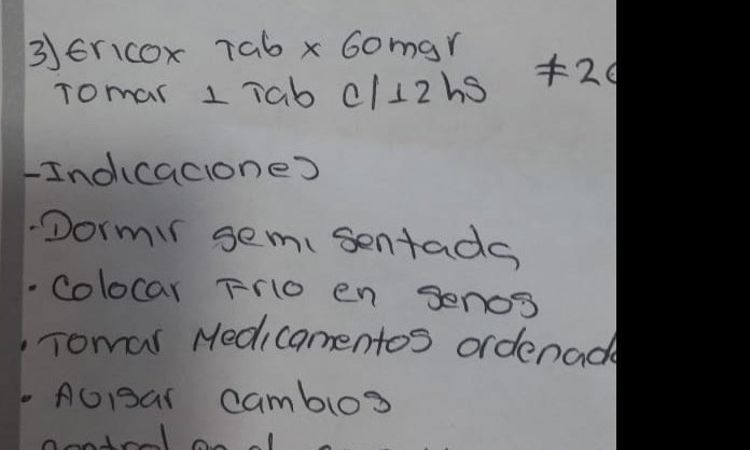 3) Ericox Tab x 60mgr
Tomar 1 Tab c/12hs ≠20
- Indicaciones
. Dormir semi sentada
. Colocar Frio en senos
. Tomar Medicamentos ordenad
. Avisar cambios
control en el